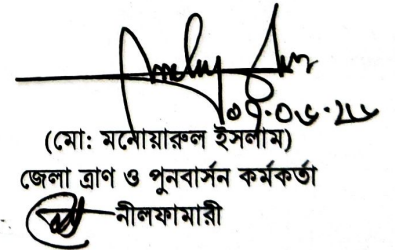 ০৭.০৬.২৬
(মো: মনোয়ারুল ইসলাম)
জেলা ত্রাণ ও পুনবার্সন কর্মকর্তা
নীলফামারী